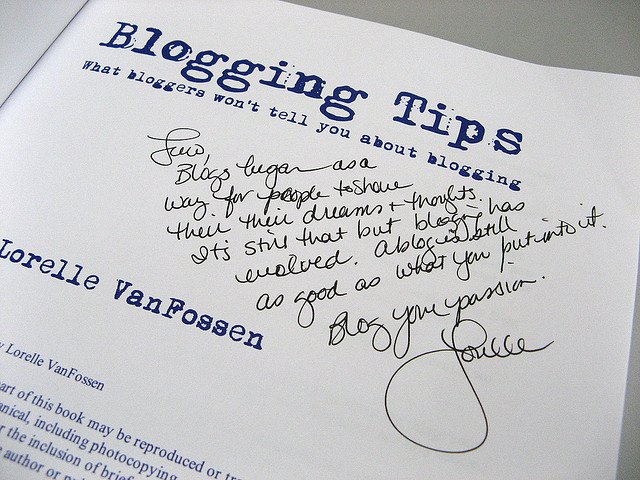 Blogging Tips
What bloggers won't tell you about blogging
Blogs began as a
way for people to share
their their dreams + thoughts.
It's still that but blogging has
evolved. A blog is still
as good as what you put into it.
Blog your passion.
Lorelle
Lorelle VanFossen
Lorelle VanFossen
art of this book may be reproduced or tra
anical, including photocopying
r the inclusion of brief
author or